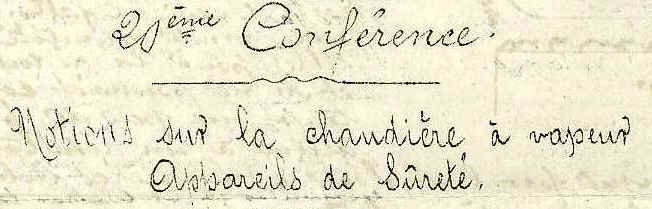 2ème Conférence.
Notions sur la chaudière à vapeur
Appareils de Sûreté.